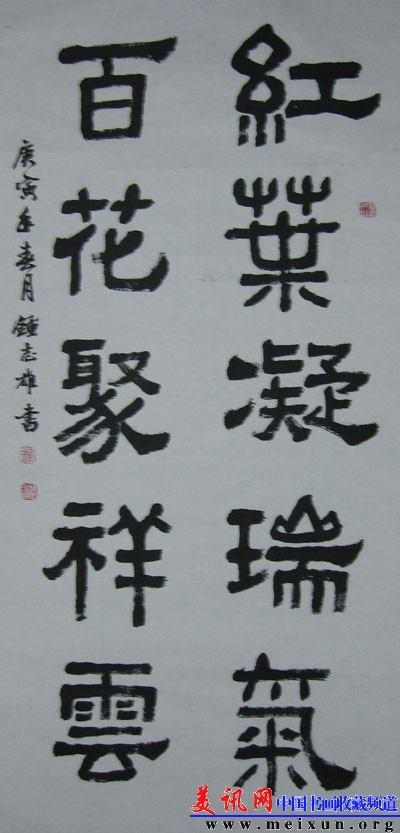 紅葉凝瑞氣
百花聚祥雲
庚寅年春月鍾志雄書
美讯网 中国书画收藏频道
www.meixun.org